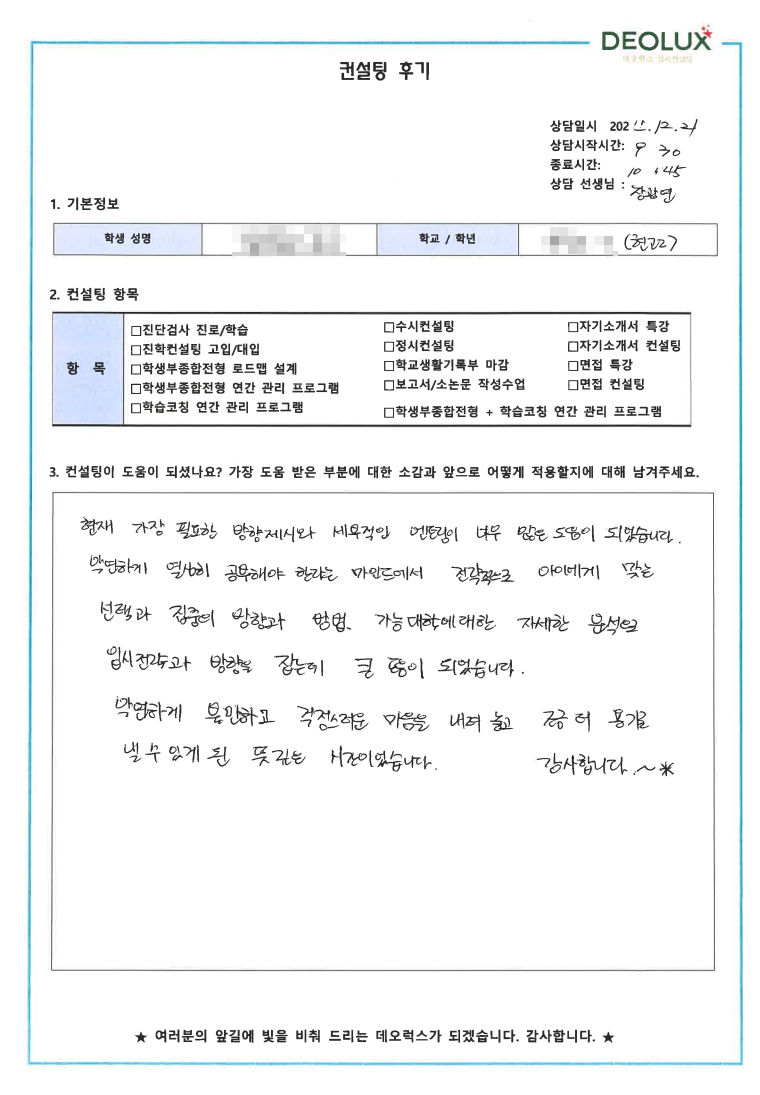 DEOLUX
데오럭스 입시컨설팅
컨설팅 후기
상담일시 202 .12.21
상담시작시간: 9 30
종료시간: 10 :45
상담 선생님 :
1. 기본정보
학생 성명
학교 / 학년 (현고2)
2. 컨설팅 항목
항 목
□진단검사 진로/학습 □수시컨설팅 □자기소개서 특강
□진학컨설팅 고입/대입 □정시컨설팅 □자기소개서 컨설팅
□학생부종합전형 로드맵 설계 □학교생활기록부 마감 □면접 특강
□학생부종합전형 연간 관리 프로그램 □보고서/소논문 작성수업 □면접 컨설팅
□학습코칭 연간 관리 프로그램 □학생부종합전형 + 학습코칭 연간 관리 프로그램
3. 컨설팅이 도움이 되셨나요? 가장 도움 받은 부분에 대한 소감과 앞으로 어떻게 적용할지에 대해 남겨주세요.
현재 가장 필요한 방향제시와 세목적인 멘토링이 너무 많은 도움이 되었습니다.
막연하게 열심히 공부해야 한다는 마인드에서 전략적으로 아이에게 맞는
선택과 집중의 방향과 방법, 가능대학에대한 자세한 분석으로
입시전략과 방향을 잡는데 큰 도움이 되었습니다.
막연하게 불안하고 걱정스러운 마음을 내려 놓고 조금 더 용기를
낼 수 있게 된 뜻깊은 시간이었습니다. 감사합니다.~*
★ 여러분의 앞길에 빛을 비춰 드리는 데오럭스가 되겠습니다. 감사합니다. ★